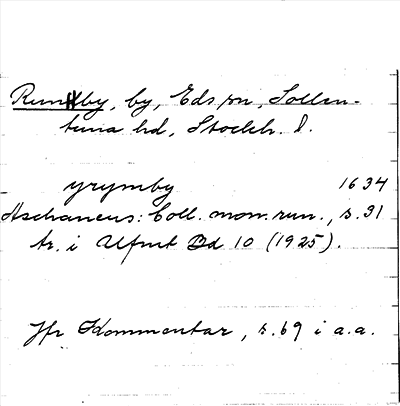 Runsby, by, Eds sn, Sollen-
tuna hd, Stockh. l.
yrymby 1634
Aschaneus: Coll. mon. run., s. 31
tr. i Upfmt Bd 10 (1925).
Jfr Kommentar, s. 69 i a.a.